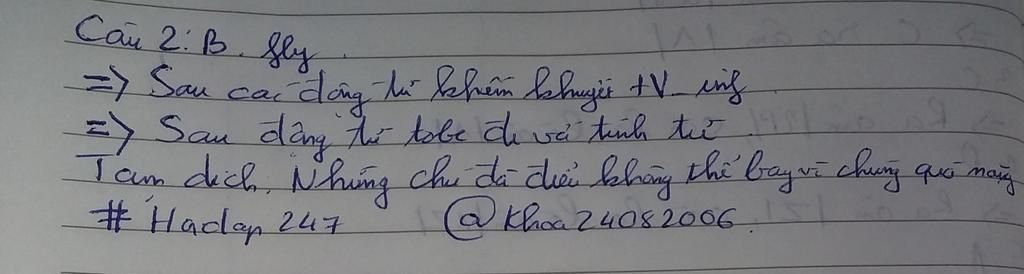 Câu 2: B. fly.
=> Sau các động từ khiếm khuyết +V_ing
=> Sau động từ tobe đi với tính từ.
Tạm dịch. Những chú đà điểu không thể bay vì chúng quá nặng
# Hadap 247 @Khoa24082006.